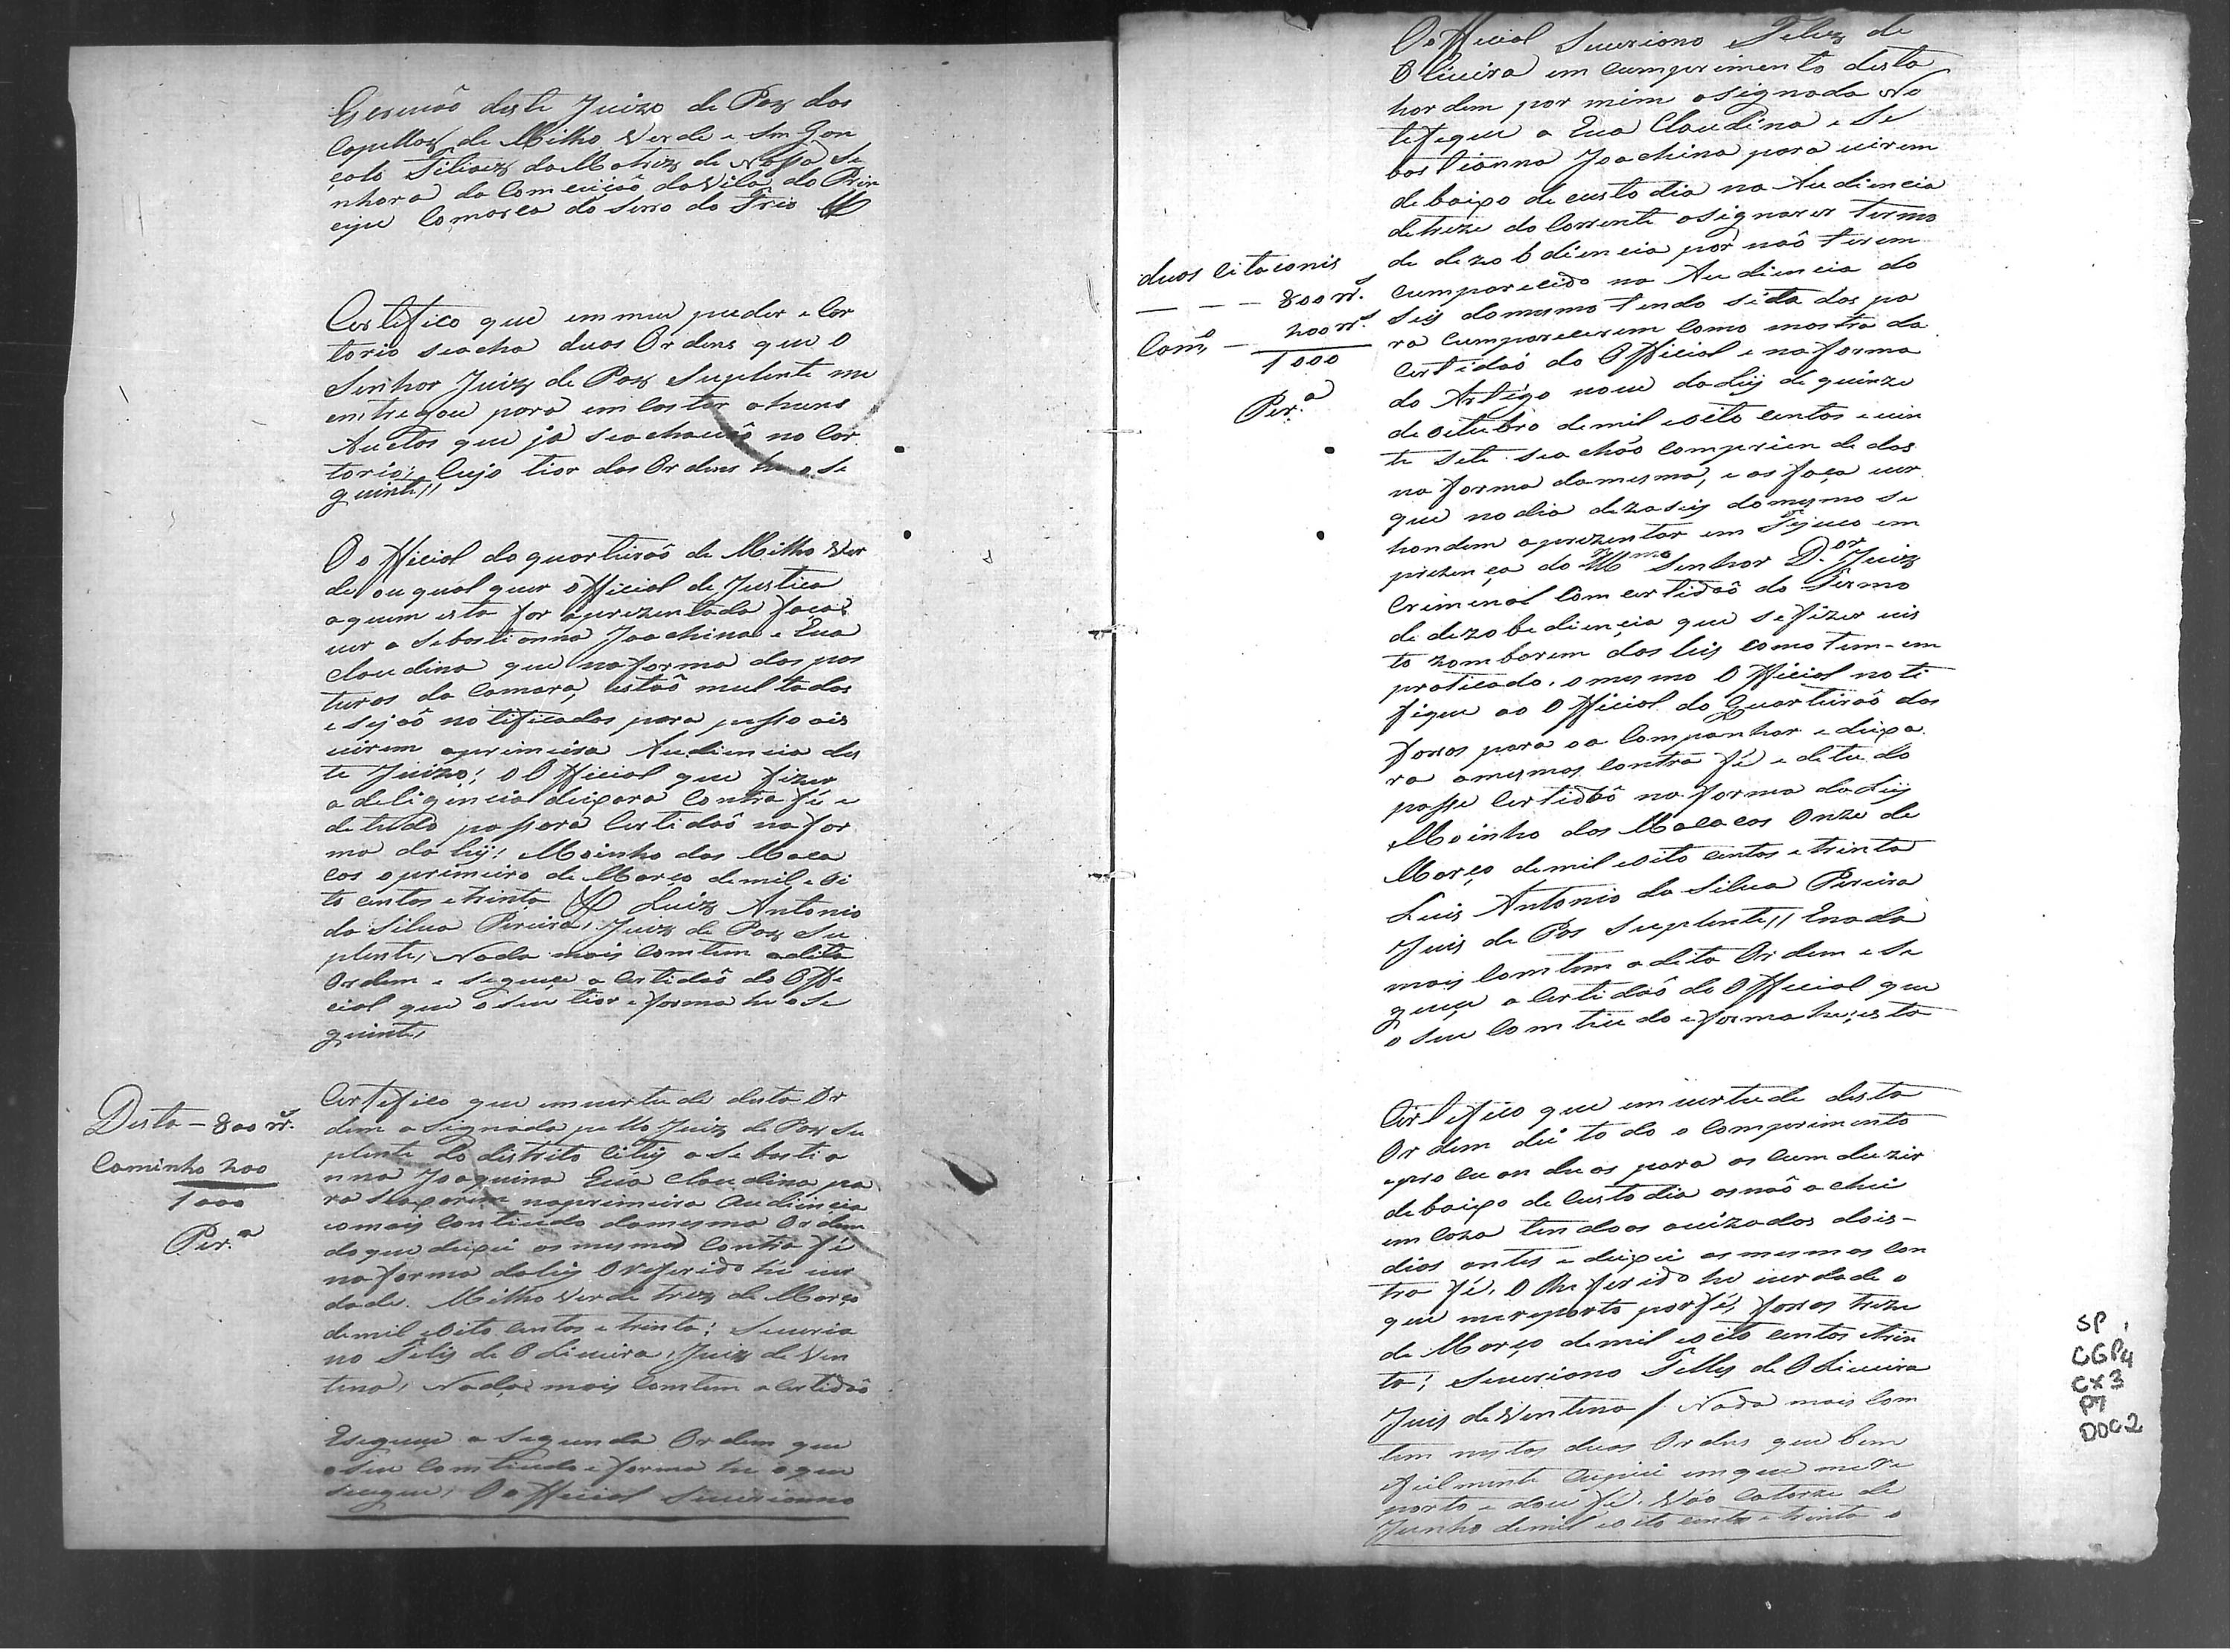 Escrivaõ deste Juizo de Paz das
Capellas de Milho Verde e Sm Gon
çalo Filiaes da Matriz de Nossa Se
nhora da Comceiçaõ da Vila do Prin
cipe Comarca do Serro do Frio

Certefico que em meu puder e Cor
torio seacha duas Ordens que o
Senhor Juiz de Paz Suplente me
entregou para emcostar ahuns
Auctos que já seachavaõ no Cor
torio; Cujo tior das Ordens he o se
guinte,,

O official do quarteiraõ de Milho Ver
de ou qual quer official de Justica
aquem esta for aprezentada faca
ver a Sebastianna Joachina e Eva
Claudina que na forma das pos
turas da Camara, estaõ multadas
e sejaõ notificadas para pessoais
virem aprimeira Audiencia des
te Juizo; o Official que fizer
a deligencia deixara Contra fé e
de tudo passara Certidaõ na for
ma da Lij; Moinho dos Maca
cos o primeiro de Março de mil e Oi
to centos e trinta Luiz Antonio
da Silva Pereira, Juiz de Paz Su
plente, Nada mais Comtem adita
Ordem e segueçe a Certidaõ do Offe
cial que o seu tior e forma he o se
guinte,

Desta – 800 rs.
Caminho 200
1000
Per.ª

Certefico que em vertude desta Or
dem a Signada pello Juiz de Paz Su
plente do distrito Citej a Sebastia
nna Joaquina Eva Claudina pa
ra na primeira Audiencia
eo mais Contiudo da mesma Ordem
do que deixei as mesmas Contra fé
na forma da lij O referido he ver
dade. Milho Verde trez de Março
de mil e oito centos e trinta; Severia
no Felis de Oliveira, Juiz de Ven
tena, Nada mais Comtem a Certidaõ

Esegueçe a Segunda Ordem que
o seu Comtiudo e forma he o que
segue, O official Severianno

O official Severiano Feliz de
Oliveira em cumprimento desta
hordem por mim asignada No
tefeque a Eva Claudina e Se
bastianna Joachina para virem
debaixo de custodia na Audiencia
de treze do Corrente asignarer termo
de dezobdiencia por naõ terem
cumparecido na Audiencia do
seis do mesmo tendo sido das pa
ra cumparecerem Como mostra da
Certidaõ do Official e na forma
do Artigo nove da Lij de quinze
de outubro de mil e oito centos e vin
te sete seachão comprien de das
na forma da mesma, e as faça ver
que no dia dezaseis do mesmo se
hondem aprezentar em Tejuco em
prezença do Illmo Senhor D.or Juiz
Criminal Com certidaõ do Termo
de dezobediençia que se fizer vis
to zombarem das leis como tem-em
praticado. o mesmo Official noti
fique ao Official do Quarteiraõ das
forras para o a Companhar e deixa
ra a mesmas Contra fé e de tudo
passe Certidaõ na forma da Lij
Moinho dos Macacos Onze de
Março de mil e oito centos e trinta
Luis Antonio da Silva Pereira
Juis de Pas Suplente,, Enada
mais Comtem adita Ordem e se
gueçe a Certidaõ do Official que
o seu Comtiudo e forma he; esta

duas citaconis
– – – 800 rs.
Camo, – 200 rs.
1000
Per.ª

Certefico que em vertude desta
Ordem dei todo o Comprimento
eprocurandoas para as Cumduzir
debaixo de Custodia as naõ achei
em Caza tendoas avizadas dois-
dias antes e deixei as mesmas Con
tra fé. O Referido he verdade o
que me reporto por fé, forras treze
de Março de mil e oito centos e trin
ta; Severiano Felles de Oliveira
Juis de Ventena / Nada mais Com
tem nestas duas Ordes que bem
efielmente Copiei emque mere
porto e dou fé. Váo Catorze de
Junho de mil e oito centos e trinta e

SP
CGP4
CX3
P7
DOC2